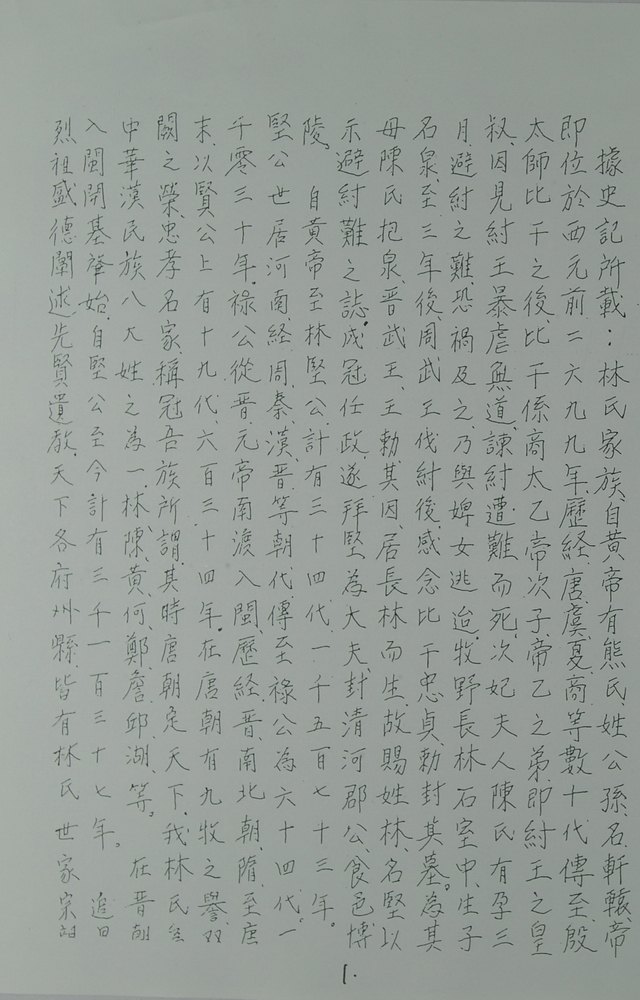 據史記所載：林氏家族、自黃帝有熊氏、姓公孫、名軒轅、帝
即位於西元前二六九九年、歷經、唐虞、夏、商等數十代、傳至殷
太師比干之後、比干係商太乙帝次子、帝乙之弟、即紂王之皇
叔、因見紂王暴虐無道、諫紂遭難而死、次妃夫人陳氏有孕三
月、避紂之難、恐禍及之、乃與婢女逃迨、牧野長林石室中、生子
名泉、至三年後、周武王伐紂後、感念比干忠貞、勅封其墓。為其
母陳氏抱泉、晋武王、王勅其因、居長林而生、故賜姓林、名堅以
示避紂難之誌。成冠任政、遂拜堅為大夫、封清河郡公、食邑博
陵。自黃帝至林堅公、計有三十四代、一千五百七十三年。
堅公世居河南、經周、秦、漢、晋等朝代、傳至祿公為六十四代、一
千零三十年。祿公從晋元帝南渡入閩、歷経、晋、南北朝、隋、至唐
末、以賢公上有十九代、六百三十四年。在唐朝有九牧之譽、双
闕之榮、忠孝名家、稱冠吾族、所謂、其時唐朝定天下、我林民
中華漢民族八大姓之為一、林、陳、黃、何、鄭、詹、邱、湖、等。在晋朝
入閩開基肇始、自堅公至今計有三千一百三十七年。追
烈祖盛德闡述、先賢遺教、天下各府州縣、皆有林氏世家宗
1.